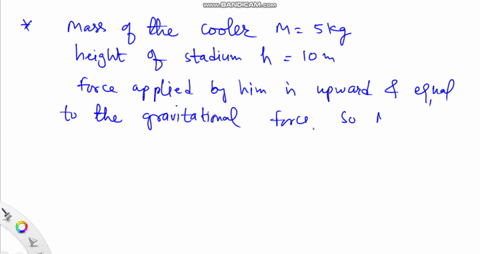 www.BANDICAM.com
* Mass of the cooler M = 5 kg
height of stadium h = 10 m
force applied by him is upward & equal
to the gravitational force. So